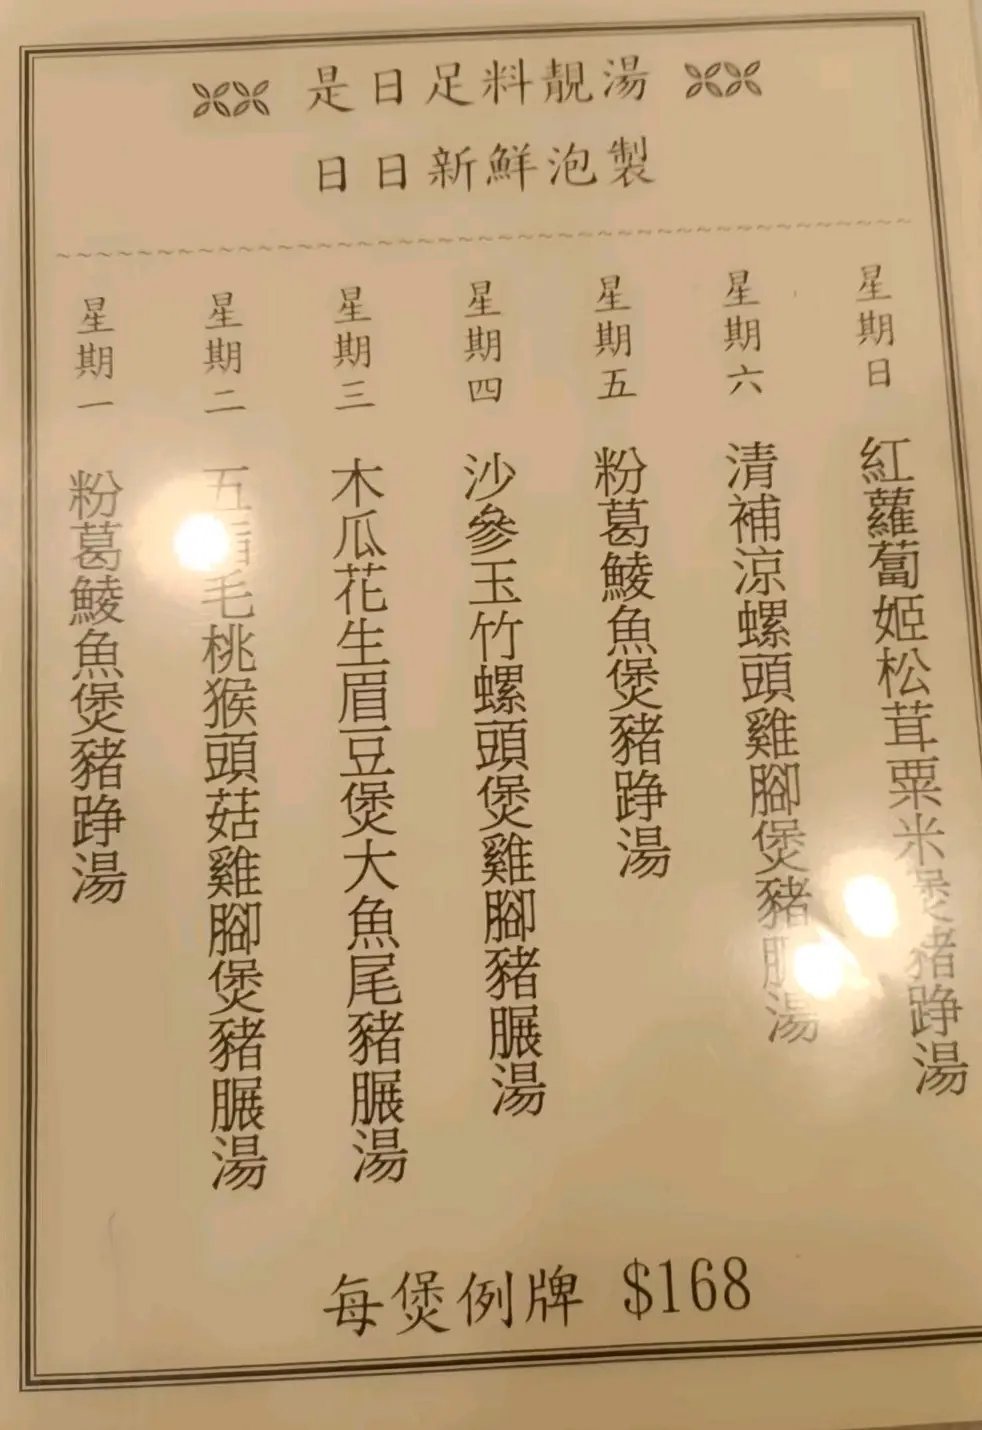 是日足料靚湯
日日新鮮泡製
星期一
粉葛鯪魚煲豬踭湯
星期二
五指毛桃猴頭菇雞腳煲豬𦟌湯
星期三
木瓜花生眉豆煲大魚尾豬𦟌湯
星期四
沙參玉竹螺頭煲雞腳豬𦟌湯
星期五
粉葛鯪魚煲豬踭湯
星期六
清補涼螺頭雞腳煲豬𦟌湯
星期日
紅蘿蔔姬松茸粟米煲豬踭湯
每煲例牌 $168